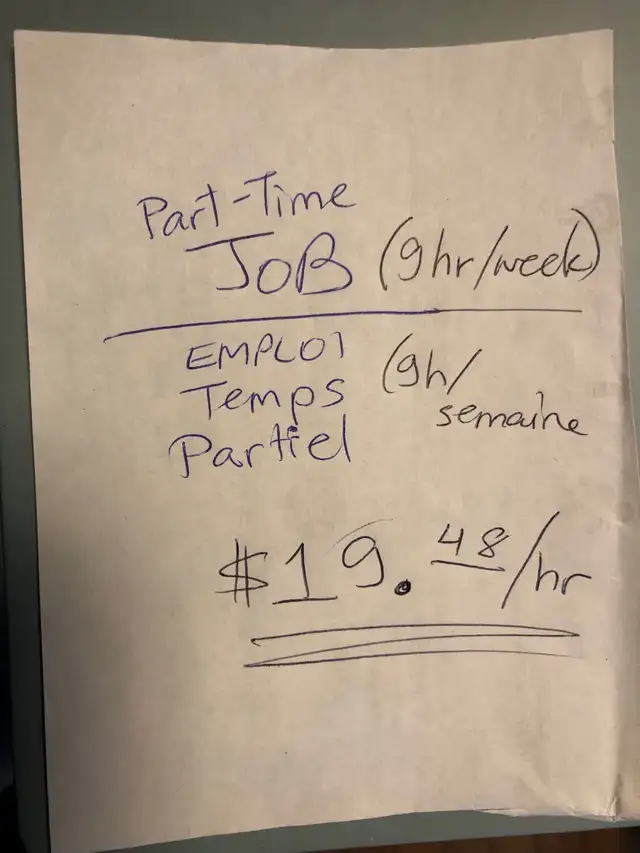 Part-Time
JOB (9hr/week)
EMPLOI (9h/
Temps semaine
Partiel
$19.48/hr